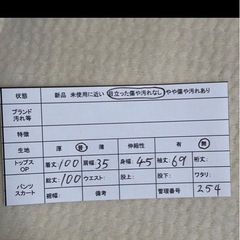 状態 新品 未使用に近い 目立った傷や汚れなし やや傷や汚れあり
ブランド 汚れ等
特徴
生地 厚 普 薄 伸縮性 有 無
トップス OP 着丈 100 肩幅 35 身幅 45 袖丈 69 裄丈
パンツ スカート 総丈 100 ウエスト 股上 股下 ワタリ
裾幅 備考 管理番号 254